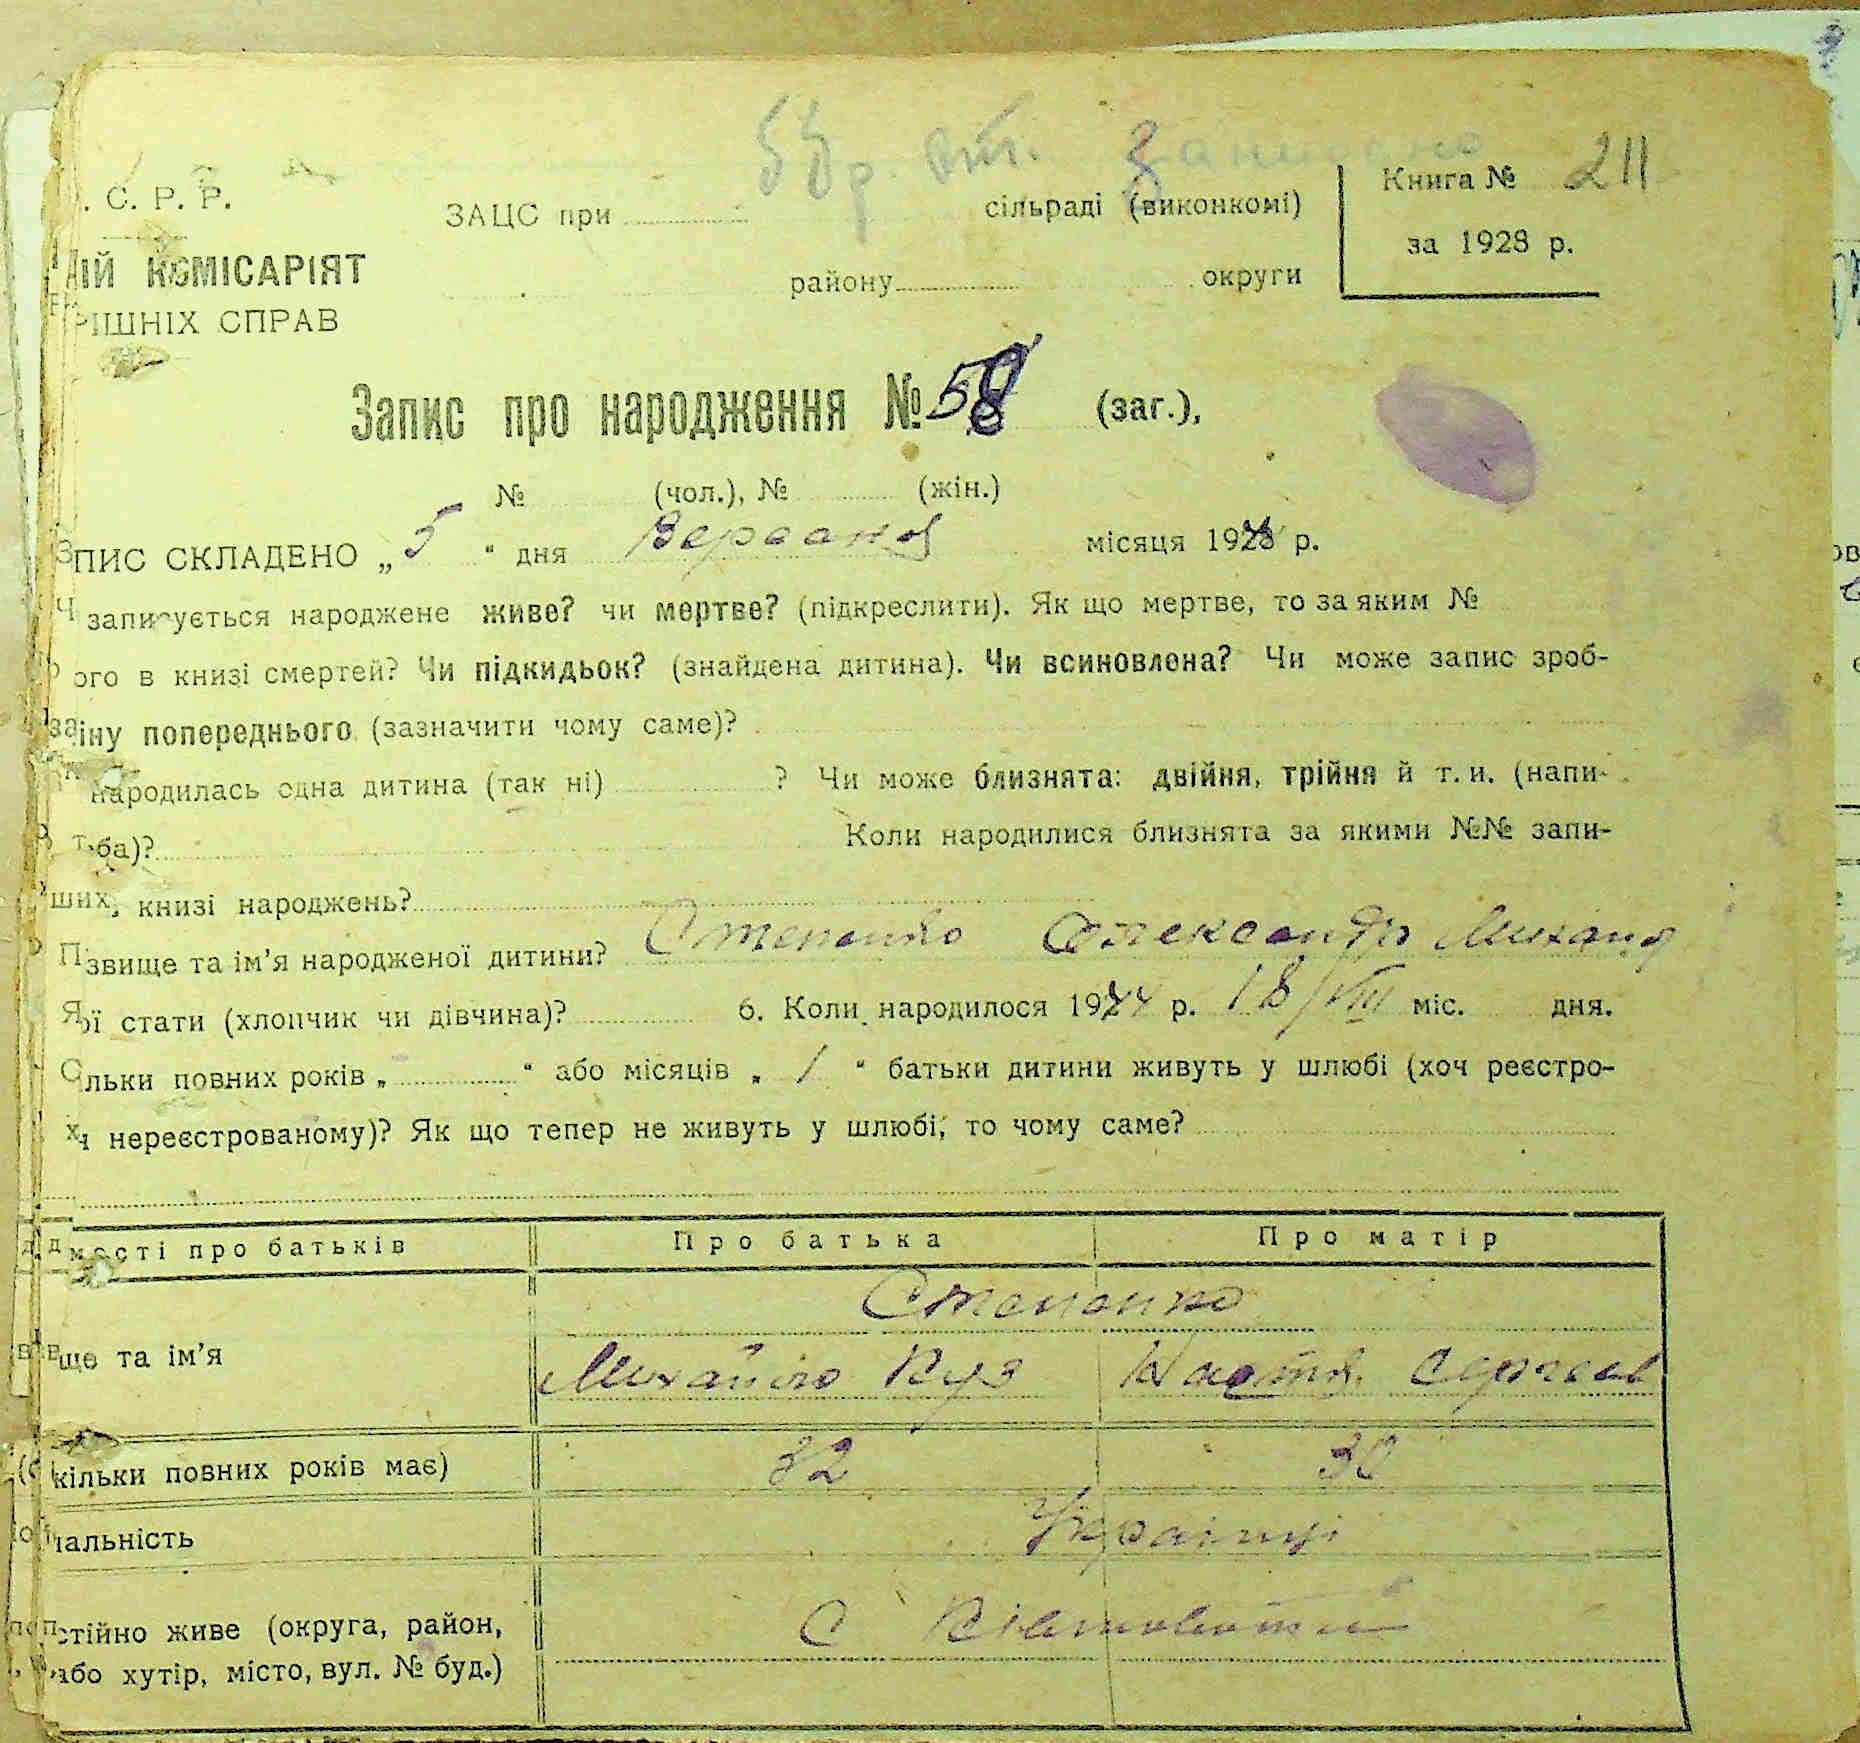 С. Р. Р.
ЗАЦС при сільраді (виконкомі)
Книга № 211
за 1928 р.
КОМІСАРІЯТ
району округи
СПРАВ
Запис про народження № 58 (заг.),
№ (чол.), № (жін.)
СКЛАДЕНО „ 5 " дня місяця р.
записується народжене живе? чи мертве? (підкреслити). Як що мертве, то за яким №
в книзі смертей? Чи підкидьок? (знайдена дитина). Чи всиновлена? Чи може запис зроб-
попереднього (зазначити чому саме)?
народилась одна дитина (так ні) ? Чи може близнята: двійня, трійня й т. и. (напи-
Коли народилися близнята за якими №№ запи-
книзі народжень?
та ім'я народженої дитини? Степанко Олександр
стати (хлопчик чи дівчина)? 6. Коли народилося 1944 р. 18/VIII міс. дня.
повних років „ " або місяців „ 1 " батьки дитини живуть у шлюбі (хоч реєстро-
нереєстрованому)? Як що тепер не живуть у шлюбі, то чому саме?
про батьків Про батька Про матір
Степанко
та ім'я Михайло Куз Настя
кільки повних років має) 32 30
Українці
живе (округа, район, с
або хутір, місто, вул. № буд.)